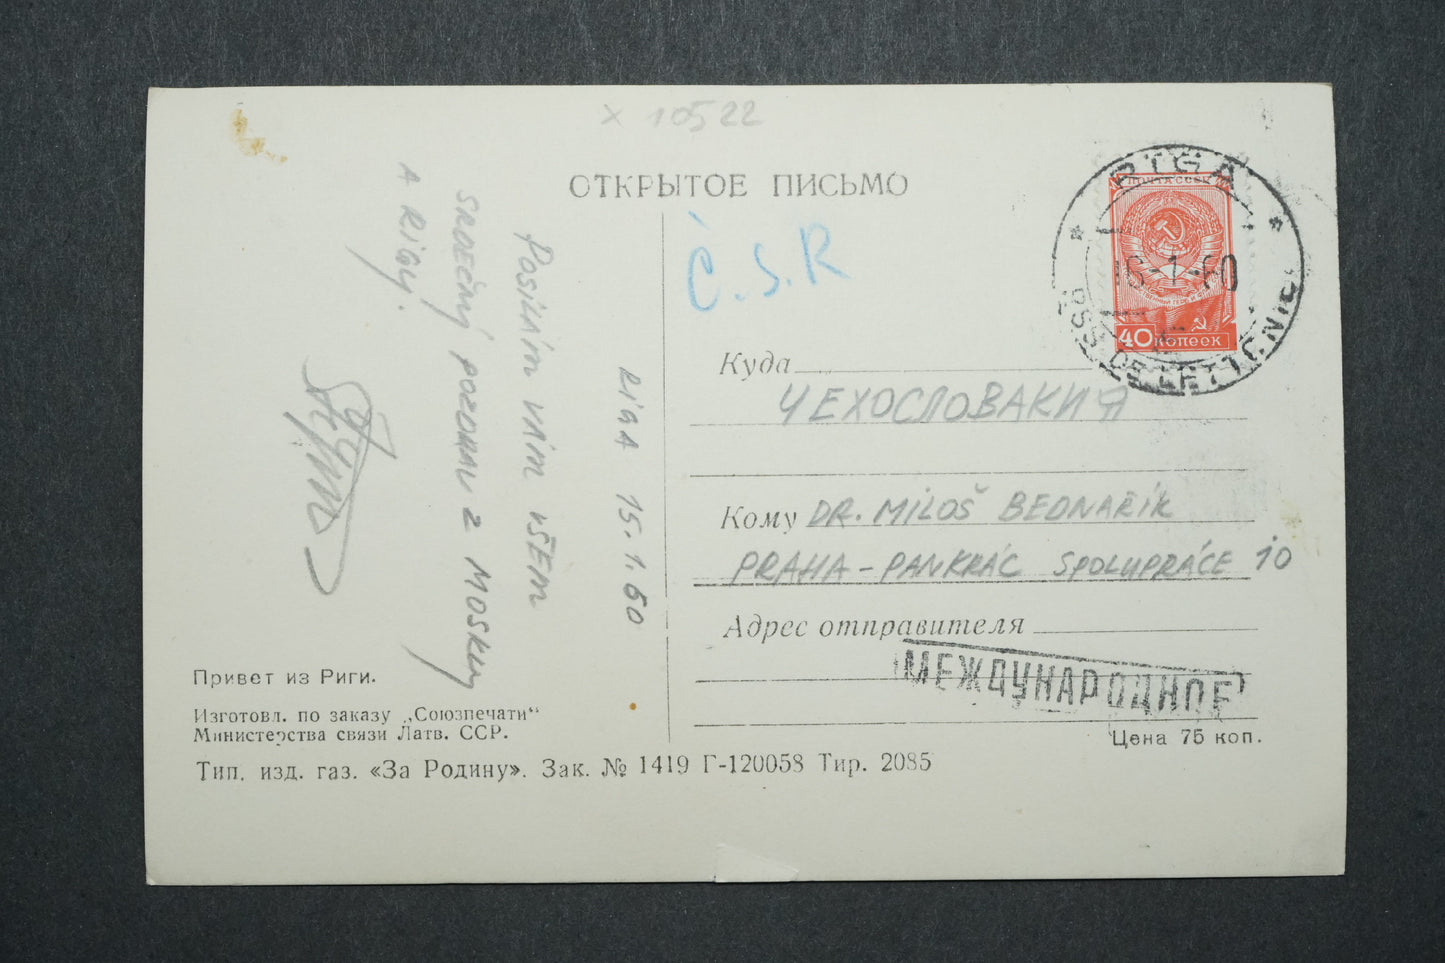 × 10522
ОТКРЫТОЕ ПИСЬМО
Č.S.R
RIGA
16-1-60
RSS DE LETTONIE
ПОЧТА СССР
40 копеек
RIGA 15.1.60
POSÍLÁM VÁM VŠEM
SRDEČNÝ POZDRAV Z MOSKVY
A RIGY.
Куда
ЧЕХОСЛОВАКИЯ
Кому DR. MILOŠ BEDNAŘÍK
PRAHA - PANKRÁC SPOLUPRÁCE 10
Адрес отправителя
МЕЖДУНАРОДНОЕ
Цена 75 коп.
Привет из Риги.
Изготовл. по заказу „Союзпечати“
Министерства связи Латв. ССР.
Тип. изд. газ. «За Родину». Зак. № 1419 Г-120058 Тир. 2085